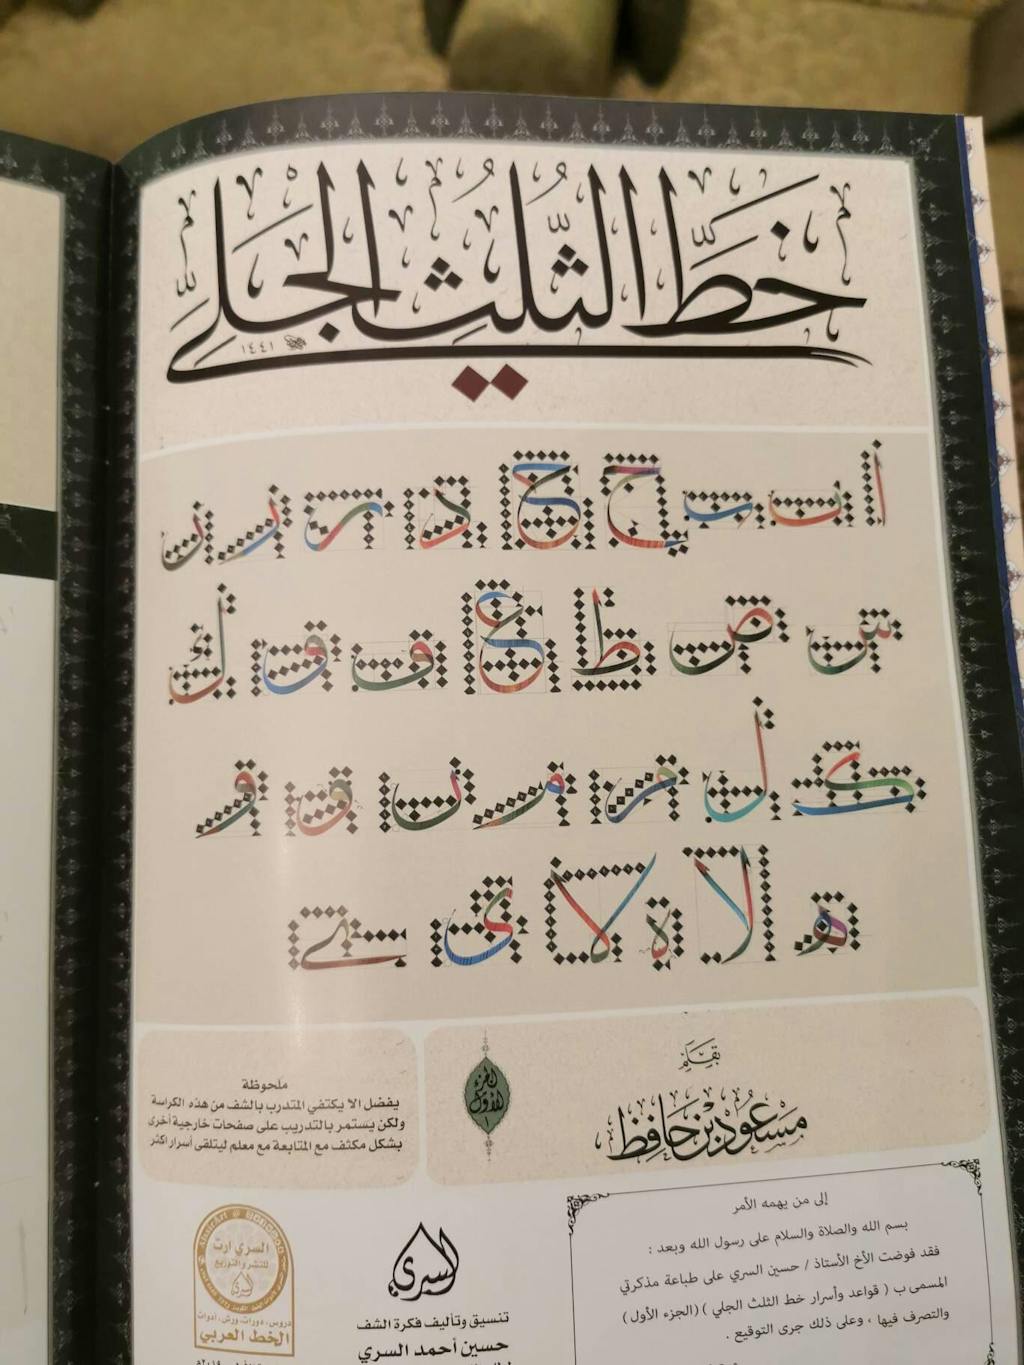 خَطُّ الثُّلُثِ الجَلِيِّ
١٤٤١
أ ب ب ج ج د ر ر ن
س ض ظ ع ق ق ك
ك ل م م ن ق و
ه لا ة لا ي ي
بِقَلَمِ
مَسْعُود بْن حَافِظ
الجزء
الأول
١
ملحوظة
يفضل الا يكتفي المتدرب بالشف من هذه الكراسة
ولكن يستمر بالتدريب على صفحات خارجية أخرى
بشكل مكثف مع المتابعة مع معلم ليتلقى أسرار اكثر
إلى من يهمه الأمر
بسم الله والصلاة والسلام على رسول الله وبعد :
فقد فوضت الأخ الأستاذ / حسين السري على طباعة مذكرتي
المسمى ب ( قواعد وأسرار خط الثلث الجلي ) (الجزء الأول)
والتصرف فيها ، وعلى ذلك جرى التوقيع .
السري
تنسيق وتأليف فكرة الشف
حسين أحمد السري
السري ارت
للنشر والتوزيع
السري
دروس، دورات، ورش، أدوات
الخط العربي